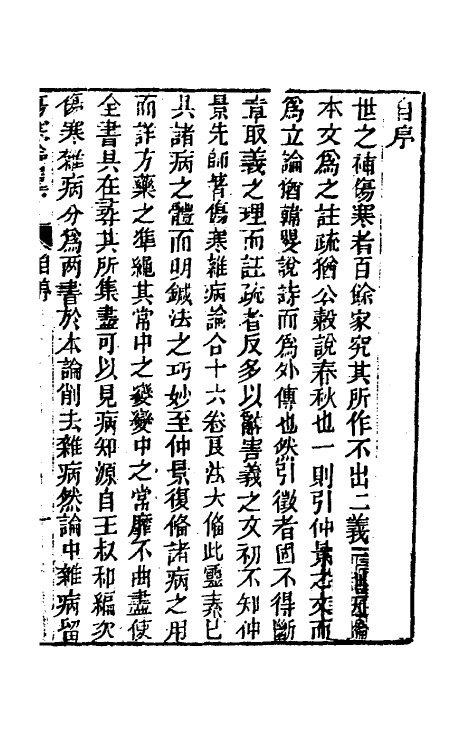 自序
世之補傷寒者百餘家究其所作不出二義一
本文為之註疏猶公穀說春秋也一則引仲景之文而
為立論猶韓嬰說詩而為外傳也然引徵者固不得斷
章取義之理而註疏者反多以辭害義之文初不知仲
景先師著傷寒雜病論合十六卷良法大備此靈素已
具諸病之體而明鍼法之巧妙至仲景復備諸病之用
而詳方藥之準繩其常中之變變中之常靡不曲盡使
全書具在尋其所集盡可以見病知源自王叔和編次
傷寒雜病分為兩書於本論削去雜病然論中雜病留
自序